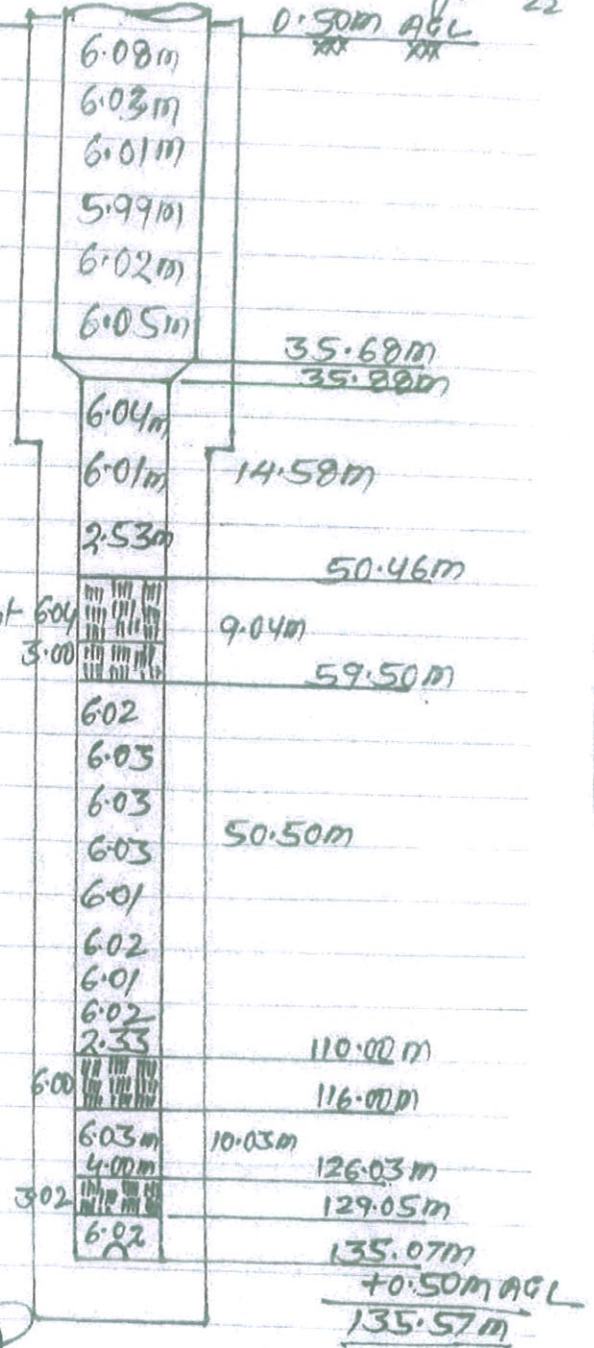 22
0.50m AGL
xxx xxx
6.08m
6.03m
6.01m
5.99m
6.02m
6.05m
35.68m
35.88m
6.04m
6.01m 14.58m
2.53m
50.46m
6.04 9.04m
3.00
59.50m
6.02
6.03
6.03
6.03 50.50m
6.01
6.02
6.01
6.02
2.33
110.00m
6.00 116.00m
6.03m 10.03m
4.00m 126.03m
3.02 129.05m
6.02
135.07m
+0.50m AGL
135.57m